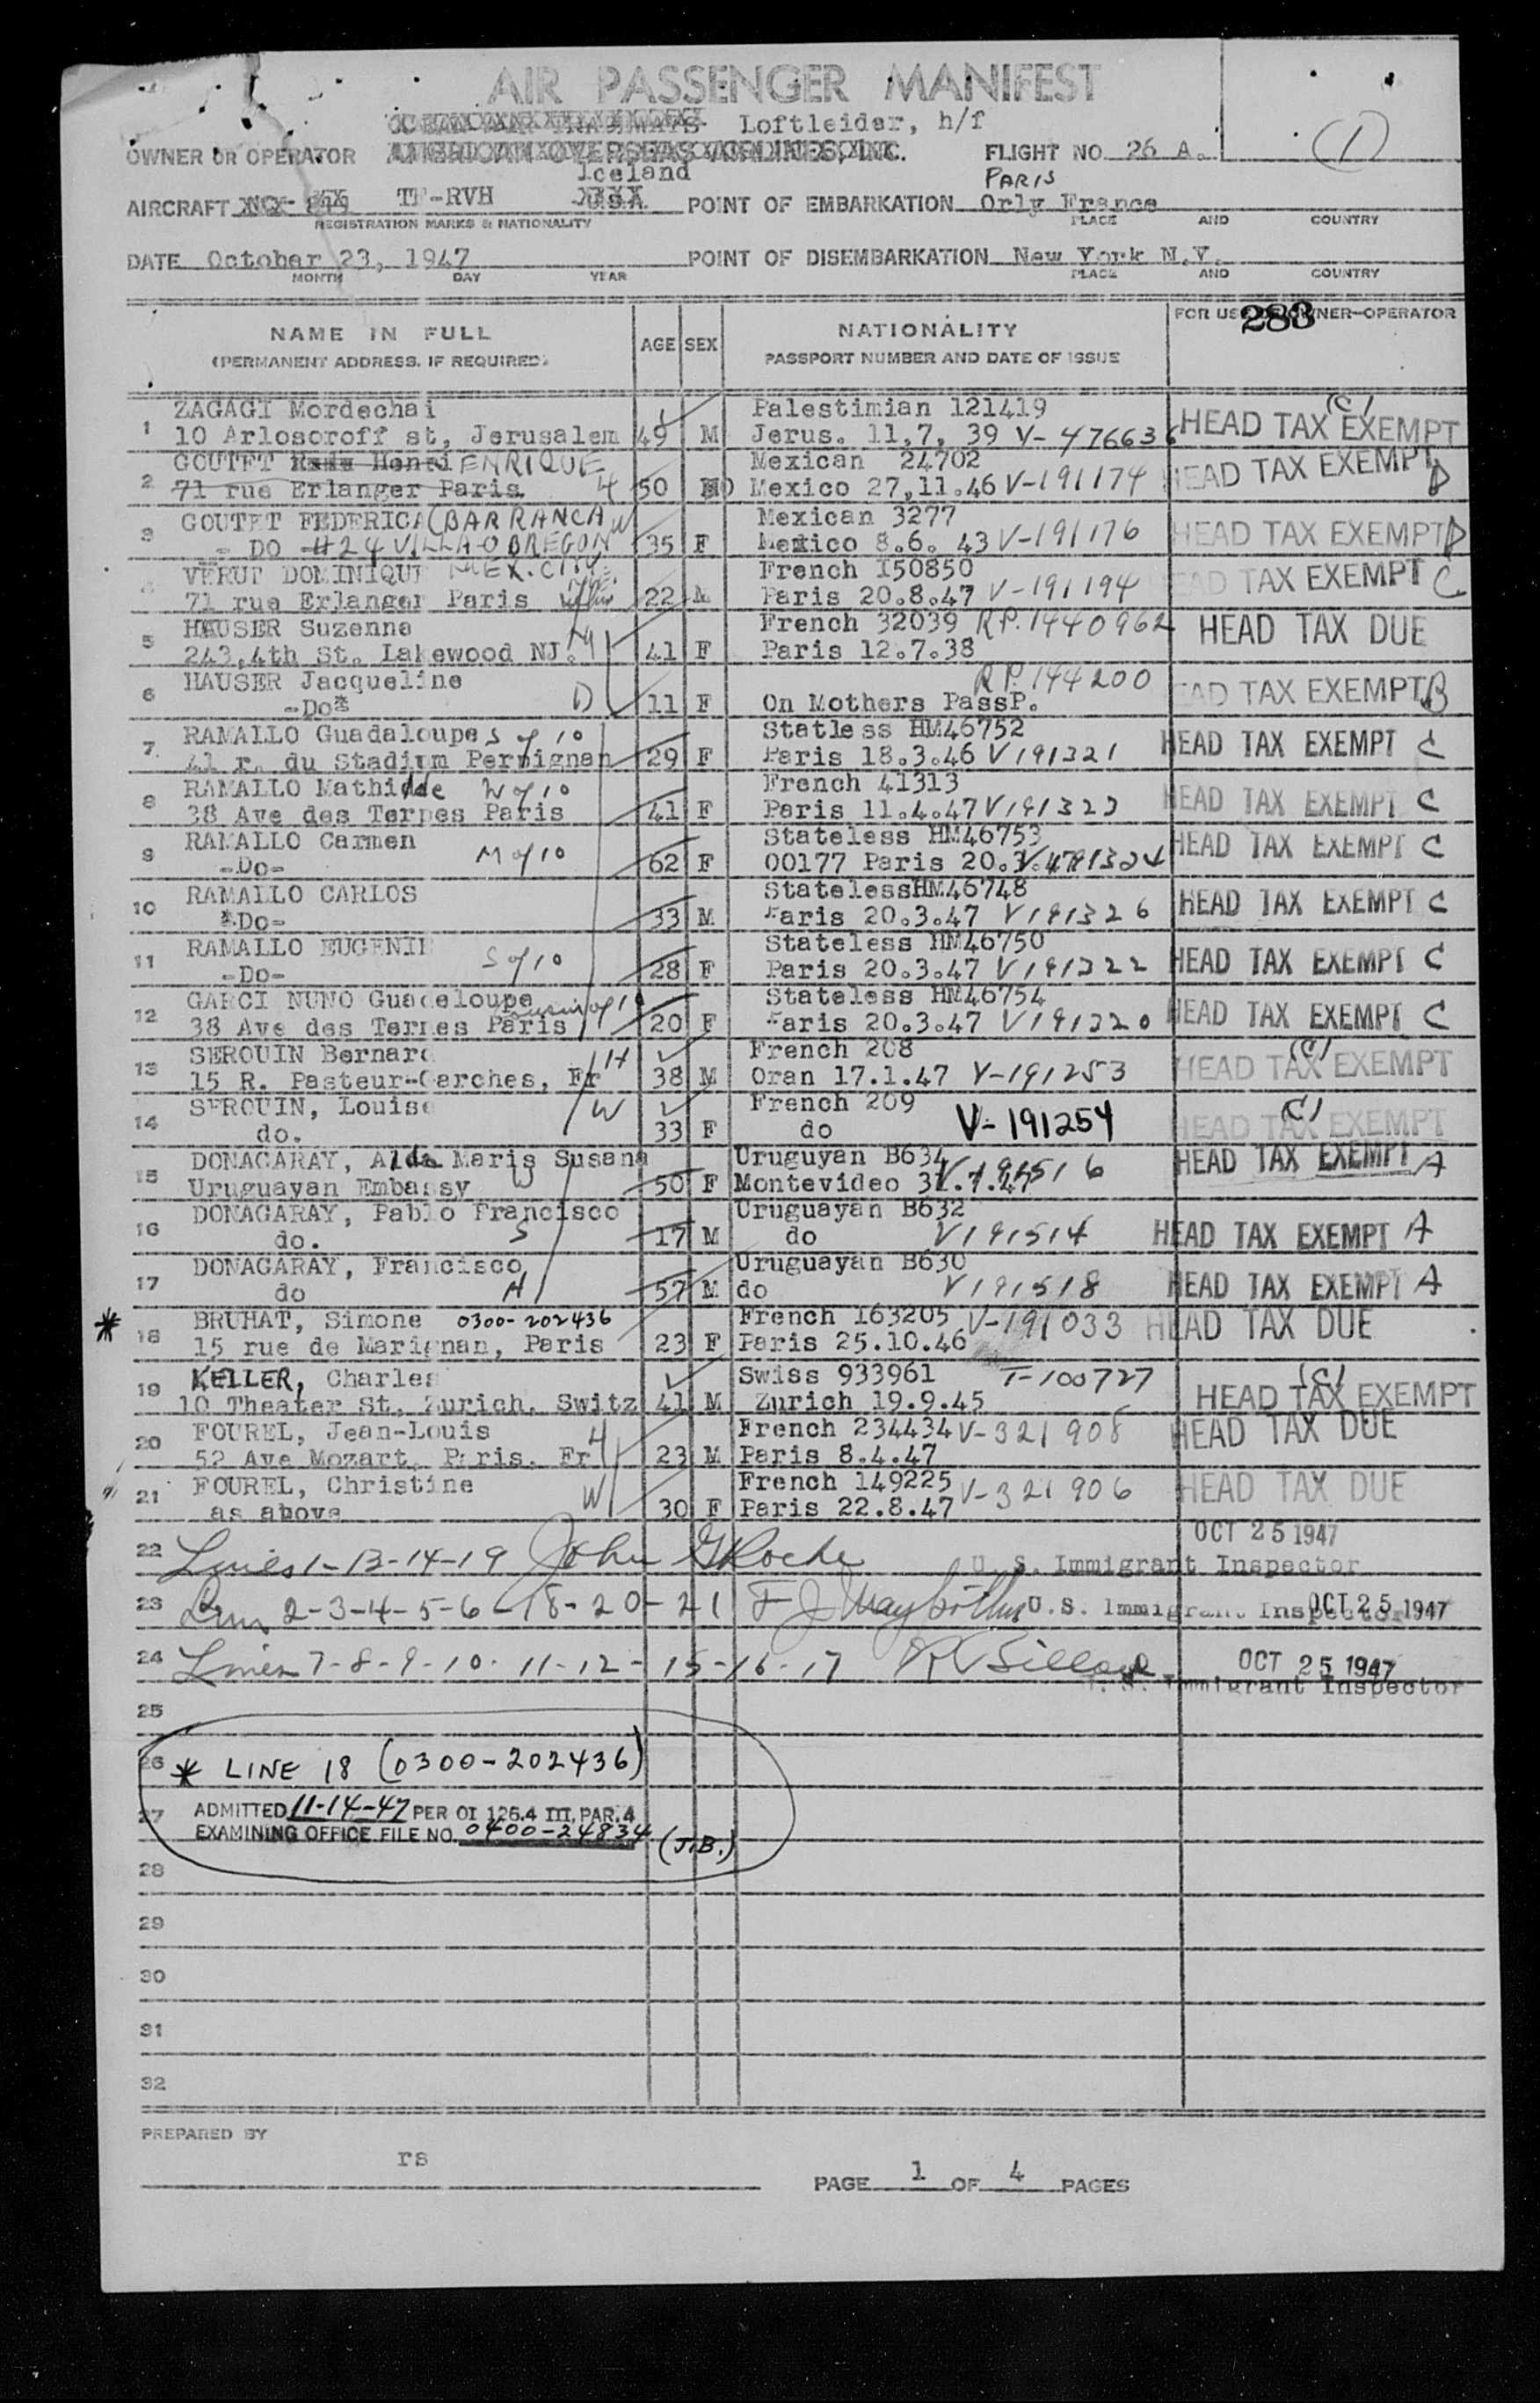 AIR PASSENGER MANIFEST
Loftleider, h/f
OWNER OR OPERATOR AMERICAN OVERSEAS AIRLINES, INC. FLIGHT NO. 26 A. (1)
Iceland
PARIS
AIRCRAFT TF-RVH USA POINT OF EMBARKATION Orly France
REGISTRATION MARKS & NATIONALITY PLACE AND COUNTRY
DATE October 23, 1947 POINT OF DISEMBARKATION New York N.Y.
MONTH DAY YEAR PLACE AND COUNTRY
NAME IN FULL AGE SEX NATIONALITY FOR USE OF OWNER-OPERATOR
283
(PERMANENT ADDRESS. IF REQUIRED) PASSPORT NUMBER AND DATE OF ISSUE
ZAGAGI Mordechai Palestimian 121419 (C)
1 10 Arlosoroff st, Jerusalem 49 M Jerus. 11,7, 39 V-476636 HEAD TAX EXEMPT
GOUTET Henri ENRIQUE Mexican 24702
2 71 rue Erlanger Paris H 50 M Mexico 27,11.46 V-191174 HEAD TAX EXEMPT B
GOUTET FEDERICA (BARRANCA W Mexican 3277
3 - DO - #24 VILLA OBREGON 35 F Mexico 8.6. 43 V-191176 HEAD TAX EXEMPT B
VERUT DOMINIQUE MEX. CITY French 150850
4 71 rue Erlanger Paris 22 M Paris 20.8.47 V-191194 HEAD TAX EXEMPT C
HAUSER Suzenne French 32039 RP.1440962
5 243,4th St. Lakewood NJ. M 41 F Paris 12.7.38 HEAD TAX DUE
HAUSER Jacqueline RP.144200
6 -Do* D 11 F On Mothers PassP. HEAD TAX EXEMPT B
RAMALLO Guadaloupe S of 10 Statless HM46752
7 41 r. du Stadium Perpignan 29 F Paris 18.3.46 V191321 HEAD TAX EXEMPT C
RAMALLO Mathilde W of 10 French 41313
8 38 Ave des Ternes Paris 41 F Paris 11.4.47 V191323 HEAD TAX EXEMPT C
RAMALLO Carmen Stateless HM46753
9 -Do- M of 10 62 F 00177 Paris 20.3.47 V191324 HEAD TAX EXEMPT C
RAMALLO CARLOS StatelessHM46748
10 *Do- 33 M Paris 20.3.47 V191326 HEAD TAX EXEMPT C
RAMALLO EUGENIE Stateless HM46750
11 -Do- S of 10 28 F Paris 20.3.47 V191322 HEAD TAX EXEMPT C
GARCI NUNO Guadeloupe Cousin of 10 Stateless HM46754
12 38 Ave des Ternes Paris 20 F Paris 20.3.47 V191320 HEAD TAX EXEMPT C
SEROUIN Bernard French 208 (C)
13 15 R. Pasteur-Garches, Fr H 38 M Oran 17.1.47 V-191253 HEAD TAX EXEMPT
SEROUIN, Louise W French 209 (C)
14 do. 33 F do V-191254 HEAD TAX EXEMPT
DONAGARAY, Alda Maris Susana Uruguyan B634
15 Uruguayan Embassy W 50 F Montevideo V.191516 HEAD TAX EXEMPT A
DONAGARAY, Pablo Francisco Uruguayan B632
16 do. S 17 M do V191514 HEAD TAX EXEMPT A
DONAGARAY, Francisco Uruguayan B630
17 do H 57 M do V191518 HEAD TAX EXEMPT A
* BRUHAT, Simone 0300-202436 French 163205 V-191033 HEAD TAX DUE
18 15 rue de Marignan, Paris 23 F Paris 25.10.46
KELLER, Charles Swiss 933961 T-100727 (C)
19 10 Theater St. Zurich. Switz 41 M Zurich 19.9.45 HEAD TAX EXEMPT
FOUREL, Jean-Louis H French 234434 V-321908 HEAD TAX DUE
20 52 Ave Mozart, Paris. Fr 23 M Paris 8.4.47
FOUREL, Christine W French 149225 V-321906 HEAD TAX DUE
21 as above 30 F Paris 22.8.47
OCT 25 1947
22 Lines 1-13-14-19 John G Roche U. S. Immigrant Inspector
23 Lines 2-3-4-5-6-18-20-21 U.S. Immigrant Inspector OCT 25 1947
24 Lines 7-8-9-10-11-12-15-16-17 OCT 25 1947
U. S. Immigrant Inspector
25
26 * LINE 18 (0300-202436)
27 ADMITTED 11-14-47 PER OI 126.4 III, PAR. 4
EXAMINING OFFICE FILE NO. 0400-24834 (J.B.)
28
29
30
31
32
PREPARED BY
rs
PAGE 1 OF 4 PAGES